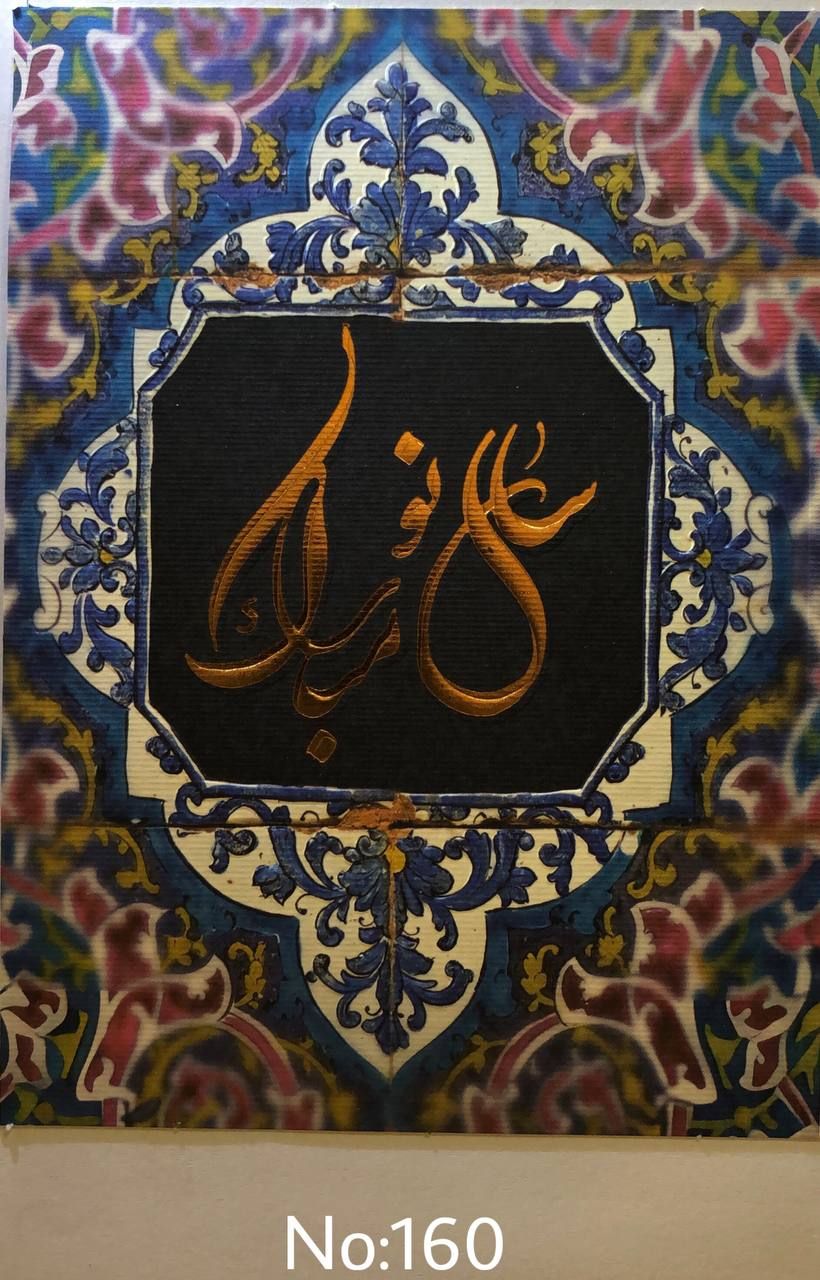 سال نو مبارک
No:160